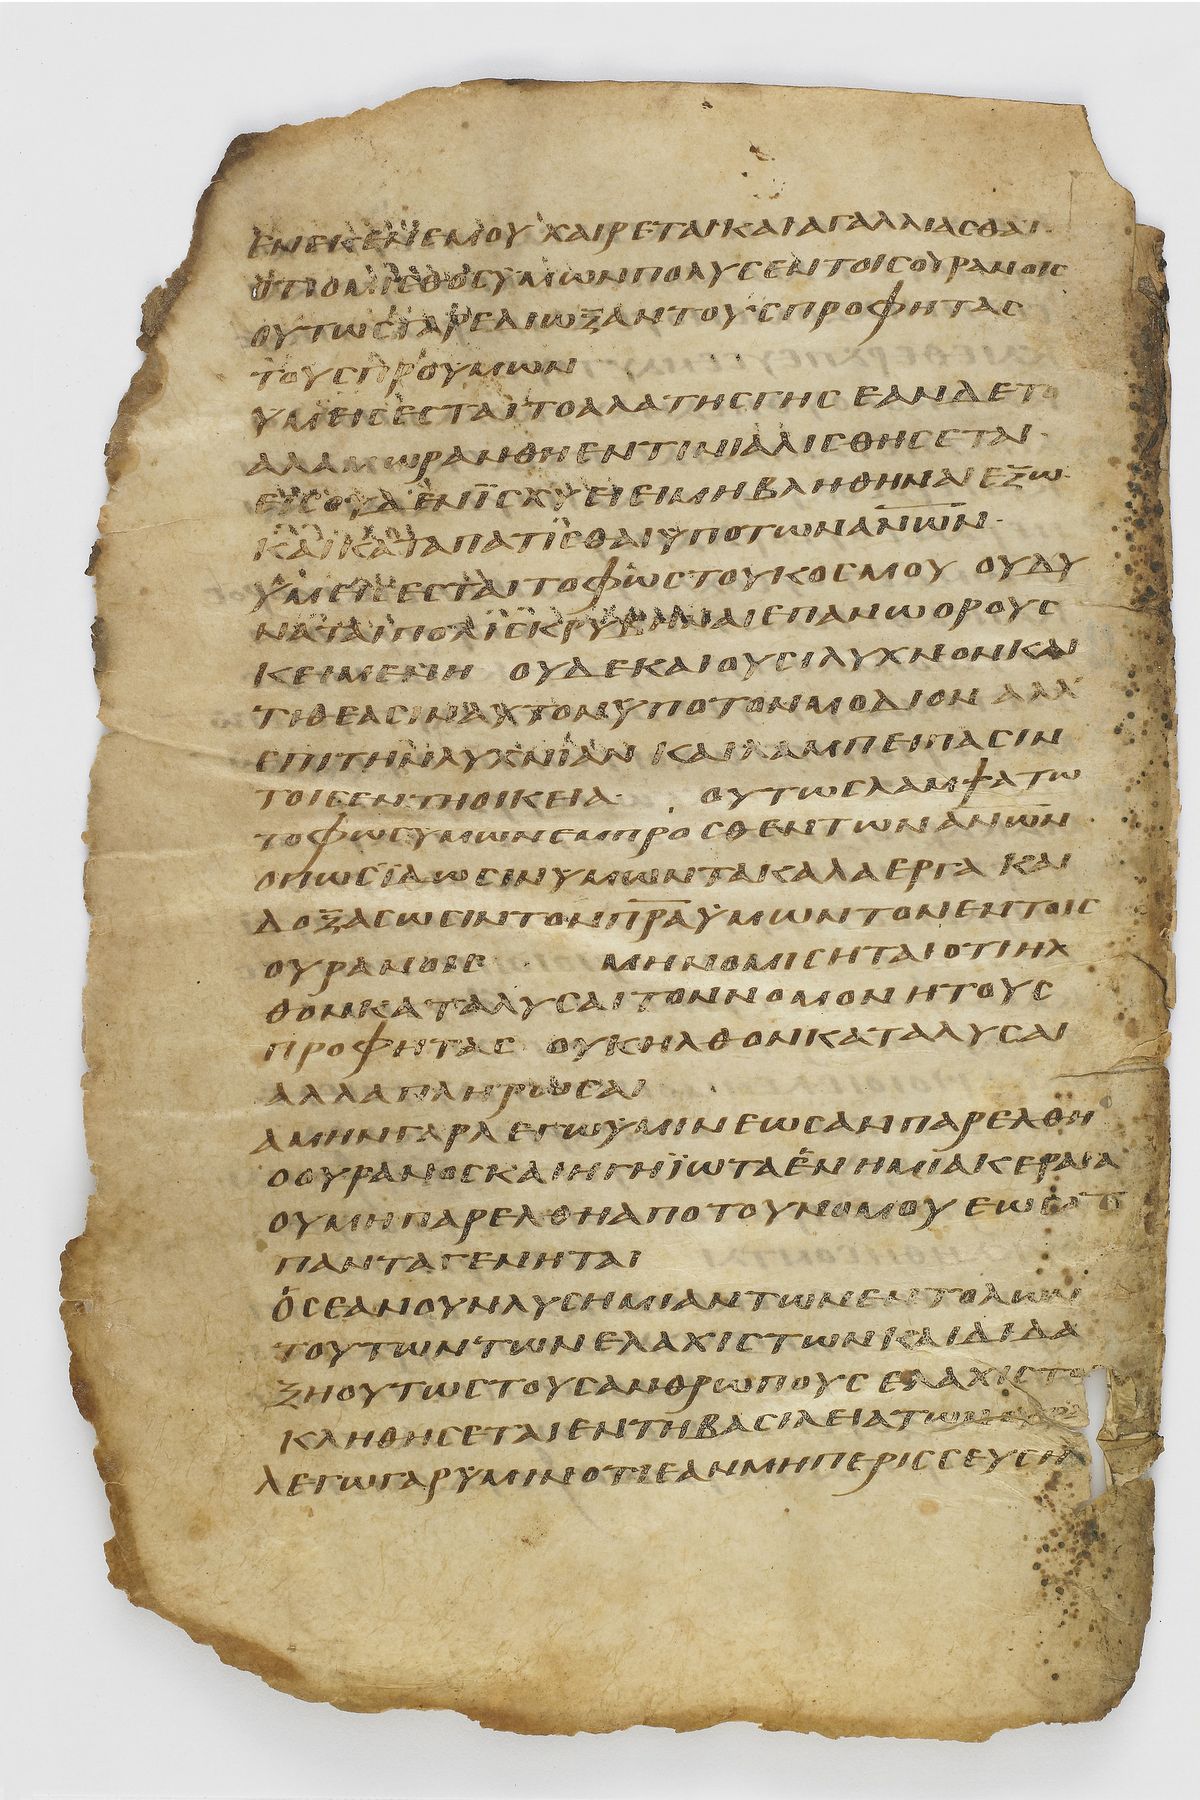 ΕΝΕΚΕΝΕΜΟΥ ΧΑΙΡΕΤΑΙΚΑΙΑΓΑΛΛΙΑΣΘΑΙ
ΟΤΙΟΜΙΣΘΟΣΥΜΩΝΠΟΛΥΣΕΝΤΟΙΣΟΥΡΑΝΟΙΣ
ΟΥΤΩΣΓΑΡΕΔΙΩΞΑΝΤΟΥΣΠΡΟΦΗΤΑΣ
ΤΟΥΣΠΡΟΥΜΩΝ
ΥΜΕΙΣΕΣΤΑΙΤΟΑΛΑΤΗΣΓΗΣ ΕΑΝΔΕΤΟ
ΑΛΑΜΩΡΑΝΘΗΕΝΤΙΝΙΑΛΙΣΘΗΣΕΤΑΙ
ΕΙΣΟΥΔΕΝΪΣΧΥΕΙΕΙΜΗΒΛΗΘΗΝΑΙΕΞΩ
ΚΑΙΚΑΤΑΠΑΤΙΣΘΑΙΥΠΟΤΩΝΑΝΩΝ
ΥΜΕΙΣΕΣΤΑΙΤΟΦΩΣΤΟΥΚΟΣΜΟΥ ΟΥΔΥ
ΝΑΤΑΙΠΟΛΙΣΚΡΥΒΗΝΑΙΕΠΑΝΩΟΡΟΥΣ
ΚΕΙΜΕΝΗ ΟΥΔΕΚΑΙΟΥΣΙΛΥΧΝΟΝΚΑΙ
ΤΙΘΕΑΣΙΝΑΥΤΟΝΥΠΟΤΟΝΜΟΔΙΟΝ ΑΛΛ
ΕΠΙΤΗΝΛΥΧΝΙΑΝ ΚΑΙΛΑΜΠΕΙΠΑΣΙΝ
ΤΟΙΣΕΝΤΗΟΙΚΕΙΑ ΟΥΤΩΣΛΑΜΨΑΤΩ
ΤΟΦΩΣΥΜΩΝΕΜΠΡΟΣΘΕΝΤΩΝΑΝΩΝ
ΟΠΩΣΙΔΩΣΙΝΥΜΩΝΤΑΚΑΛΑΕΡΓΑ ΚΑΙ
ΔΟΞΑΣΩΣΙΝΤΟΝΠΡΑΥΜΩΝΤΟΝΕΝΤΟΙΣ
ΟΥΡΑΝΟΙΣ ΜΗΝΟΜΙΣΗΤΑΙΟΤΙΗΛ
ΘΟΝΚΑΤΑΛΥΣΑΙΤΟΝΝΟΜΟΝΗΤΟΥΣ
ΠΡΟΦΗΤΑΣ ΟΥΚΗΛΘΟΝΚΑΤΑΛΥΣΑΙ
ΑΛΛΑΠΛΗΡΩΣΑΙ
ΑΜΗΝΓΑΡΛΕΓΩΥΜΙΝΕΩΣΑΝΠΑΡΕΛΘΗ
ΟΟΥΡΑΝΟΣΚΑΙΗΓΗΪΩΤΑΕΝΗΜΙΑΚΕΡΑΙΑ
ΟΥΜΗΠΑΡΕΛΘΗΑΠΟΤΟΥΝΟΜΟΥ ΕΩΣΑΝ
ΠΑΝΤΑΓΕΝΗΤΑΙ
ΟΣΕΑΝΟΥΝΛΥΣΗΜΙΑΝΤΩΝΕΝΤΟΛΩΝ
ΤΟΥΤΩΝΤΩΝΕΛΑΧΙΣΤΩΝΚΑΙΔΙΔΑ
ΞΗΟΥΤΩΣΤΟΥΣΑΝΘΡΩΠΟΥΣ ΕΛΑΧΙΣΤΟΣ
ΚΛΗΘΗΣΕΤΑΙΕΝΤΗΒΑΣΙΛΕΙΑΤΩΝ
ΛΕΓΩΓΑΡΥΜΙΝΟΤΙΕΑΝΜΗΠΕΡΙΣΣΕΥΣΗ